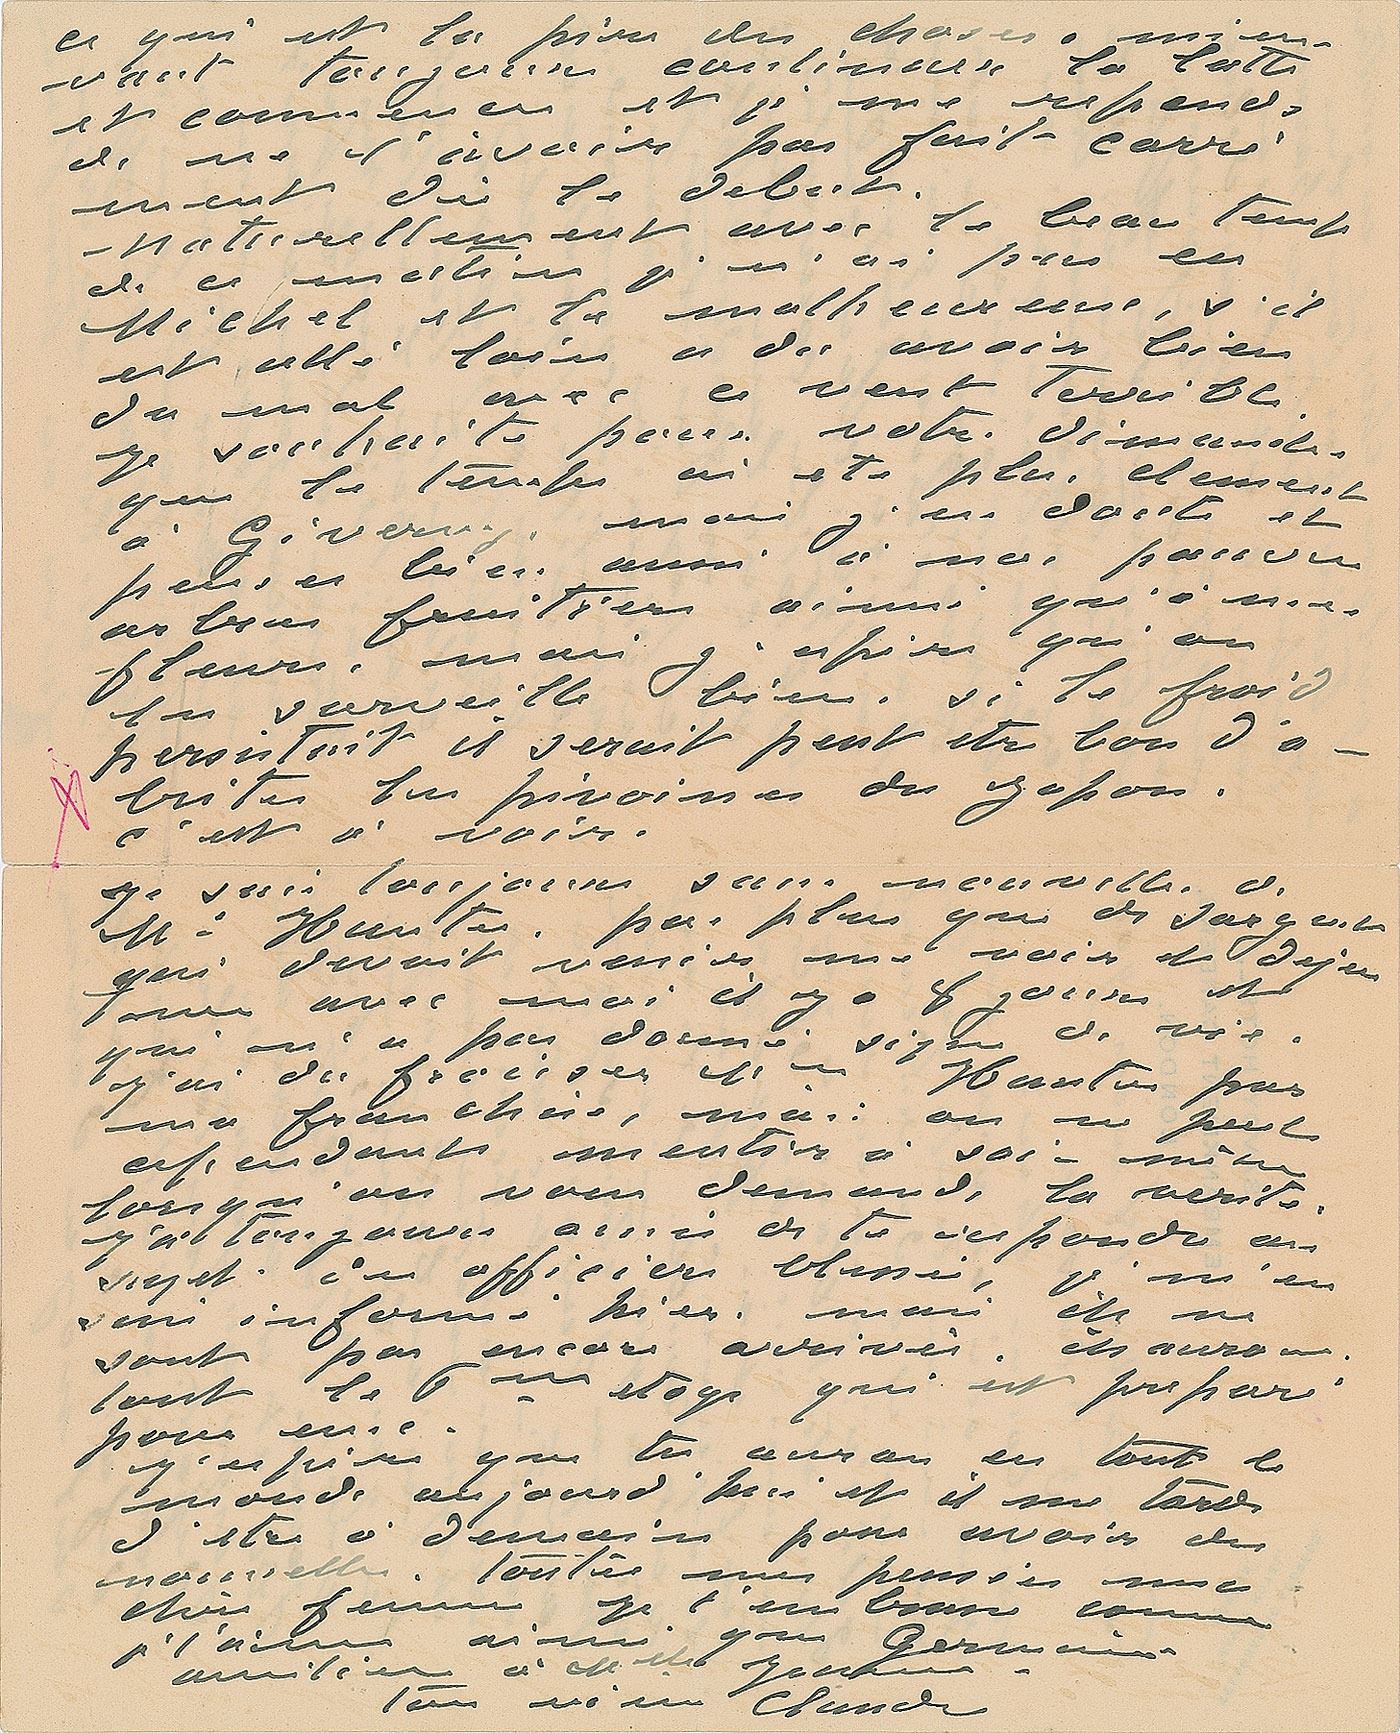 ce qui est la pire des choses. mieux
vaut toujours continuer la lutte
et commencer et je me repends
de ne l'avoir pas fait carré
ment dès le debut.
Naturellement avec le beau temps
de ce matin je n'ai pas eu
Michel et le malheureux, s'il
est allé loin a du avoir bien
du mal avec ce vent terrible.
je souhaite pour votre dimanche
que le temps ai ete plus clement
à Giverny, mais j'en doute et
pense bien aussi à nos pauvres
arbres fruitiers ainsi qu'à mes
fleurs. mais j'espère qu'on
les surveille bien. si le froid
persistait il serait peut etre bon d'a-
briter les pivoines du japon.
c'est à voir.
je suis toujours sans nouvelles de
Me Hunter. pas plus que de Sargent
qui devait venir me voir et dejeu
ner avec moi il y a 8 jours et
qui n'a pas donné signe de vie.
j'ai du froisser Me Hunter par
ma franchise, mais on ne peut
cependant mentir à soi-même
lorsqu'on vous demande la verité.
j'ai toujours omis de te repondre au
sujet des officiers blessés, je m'en
suis informé hier. mais ils ne
sont pas encore arrivés. ils auront
tout le 6me etage qui est preparé
pour eux.
j'espère que tu auras eu tout le
monde aujourd'hui et il me tarde
d'etre à demain pour avoir des
nouvelles. toutes mes pensées ma
chère femme je t'embrasse comme
je t'aime ainsi que Germaine
amitiés à Mlle
ton vieux Claude